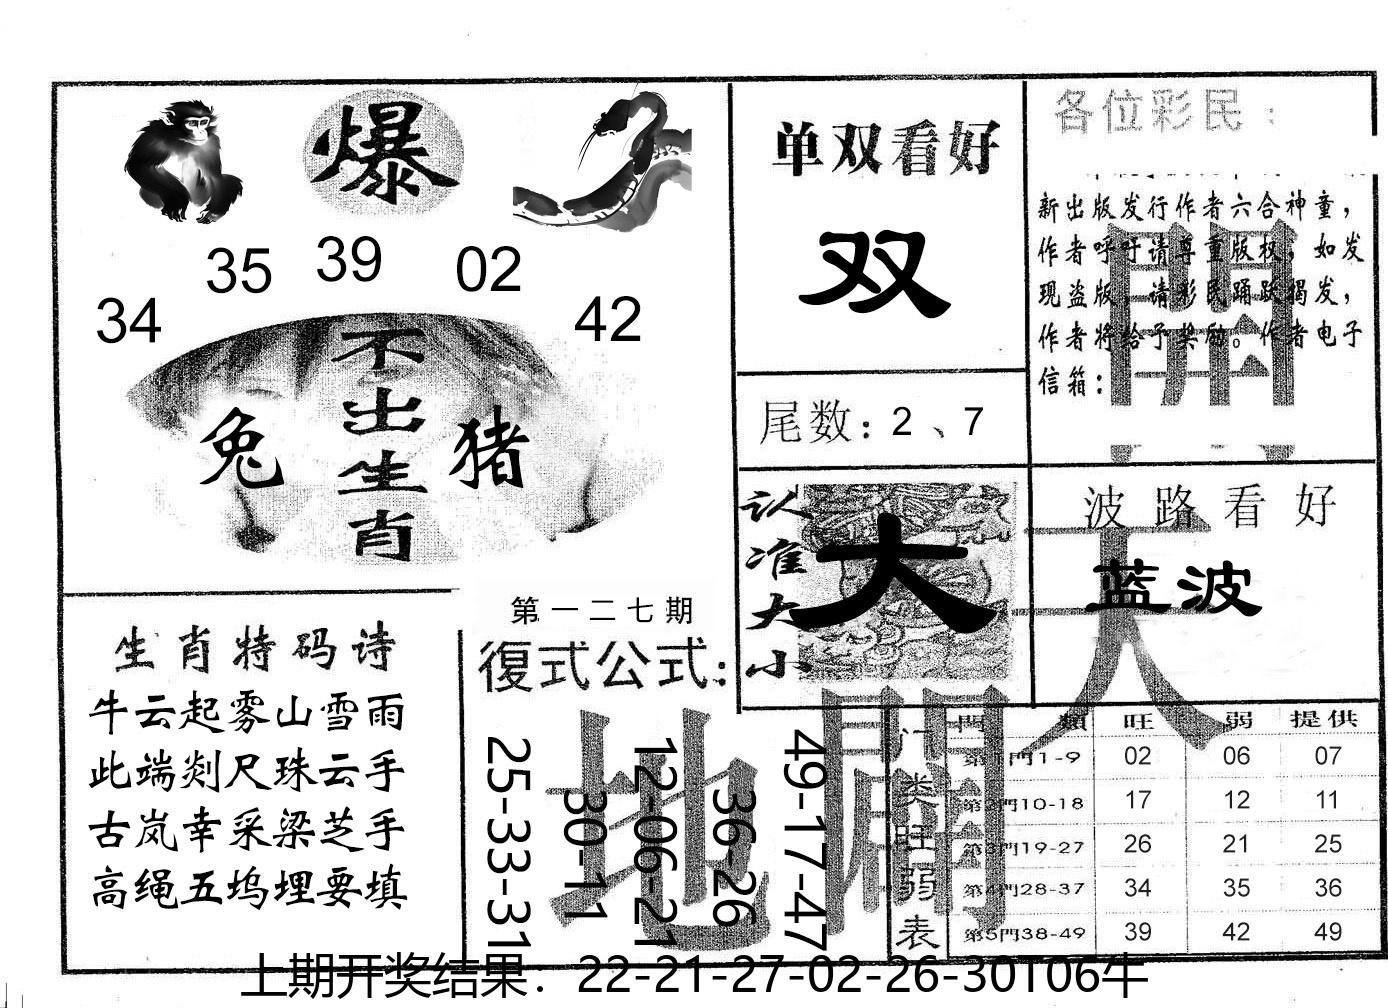 爆
35 39 02
34 42
不出生肖
兔 猪
单双看好
双
尾数：2、7
各位彩民：
新出版发行作者六合神童，
作者呼吁请尊重版权，如发
现盗版，请彩民踊跃揭发，
作者将给予奖励。作者电子
信箱：
認准大小
大
波路看好
蓝波
天
生肖特码诗
牛云起雾山雪雨
此端剡尺珠云手
古岚幸采梁芝手
高绳五坞埋要填
第一二七期
復式公式：
25-33-31
30-11
12-06-21
36-26
49-17-47
地
门类旺弱表
門類 旺 弱 提供
第1門1-9 02 06 07
第2門10-18 17 12 11
第3門19-27 26 21 25
第4門28-37 34 35 36
第5門38-49 39 42 49
上期开奖结果：22-21-27-02-26-30T06牛